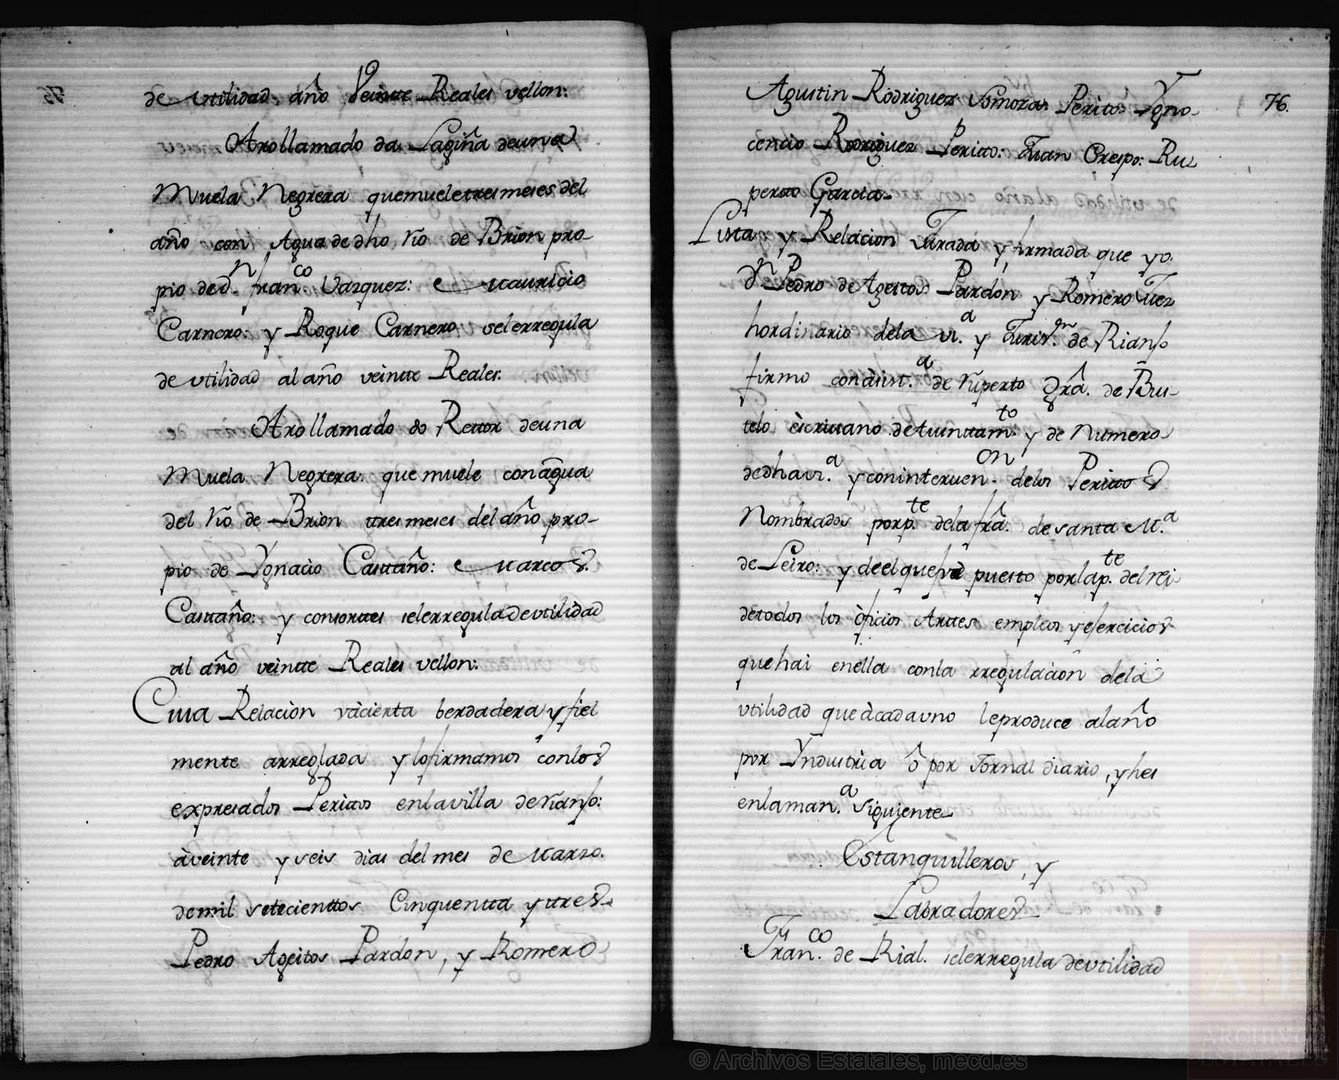 de utilidad año Veinte Reales vellon:
Otro llamado da Lagiña de una
Muela Negrera que muele tres meses del
año con Agua de dho Rio de Brion pro-
pio de dn. franco Vazquez: Mauricio
Carnero: y Roque Carnero se le rregula
de utilidad al año veinte Reales.
Otro llamado do Rector de una
Muela Negrera que muele con agua
del Rio de Brion tres meses del año pro-
pio de Ygnacio Castaño: Marcos
Castaño: y consortes se le rregula de utilidad
al año veinte Reales vellon:
Cuia Relaciòn và cierta berdadera y fiel
mente arreglada y lo firmamos con los
expresados Peritos en la villa de rianso:
à veinte y seis dias del mes de Marzo.
de mil setecienttos Cinquentta y ttres
Pedro Ageitos Pardon, y Romero
Agustin Rodriguez Somoza Perito: Ygno- 76.
cencio Rodriguez Perito: Juan Crespo: Ru
perto Garcia-
Lista y Relacion Jurada y firmada que yo
Dn Pedro de Ageitos Pardon y Romero Juez
hordinario de la va. y Jurisn. de Rianso
firmo con àsista. de Ruperto Gra. de Bus-
telo èscriuano de Aiuntamto y de Numero
de dha va. y con interuenon. de los Peritos
Nombrados por pte de la frâ. de santa Ma
de Leiro: y de el que fuè puesto por la pte. del rei
de todos los òficios Artes empleos y esercicios
que hai en ella con la rregulacion de la
utilidad que à cada uno le produce al año
por Yndustria ô por Jornal diario, y hes
en la mana. siguiente
Estanquilleros, y
Labradores
Franco. de Rial. se le rregula de utilidad
© Archivos Estatales, mecd.es
ARCHIVOS
ESTATALES